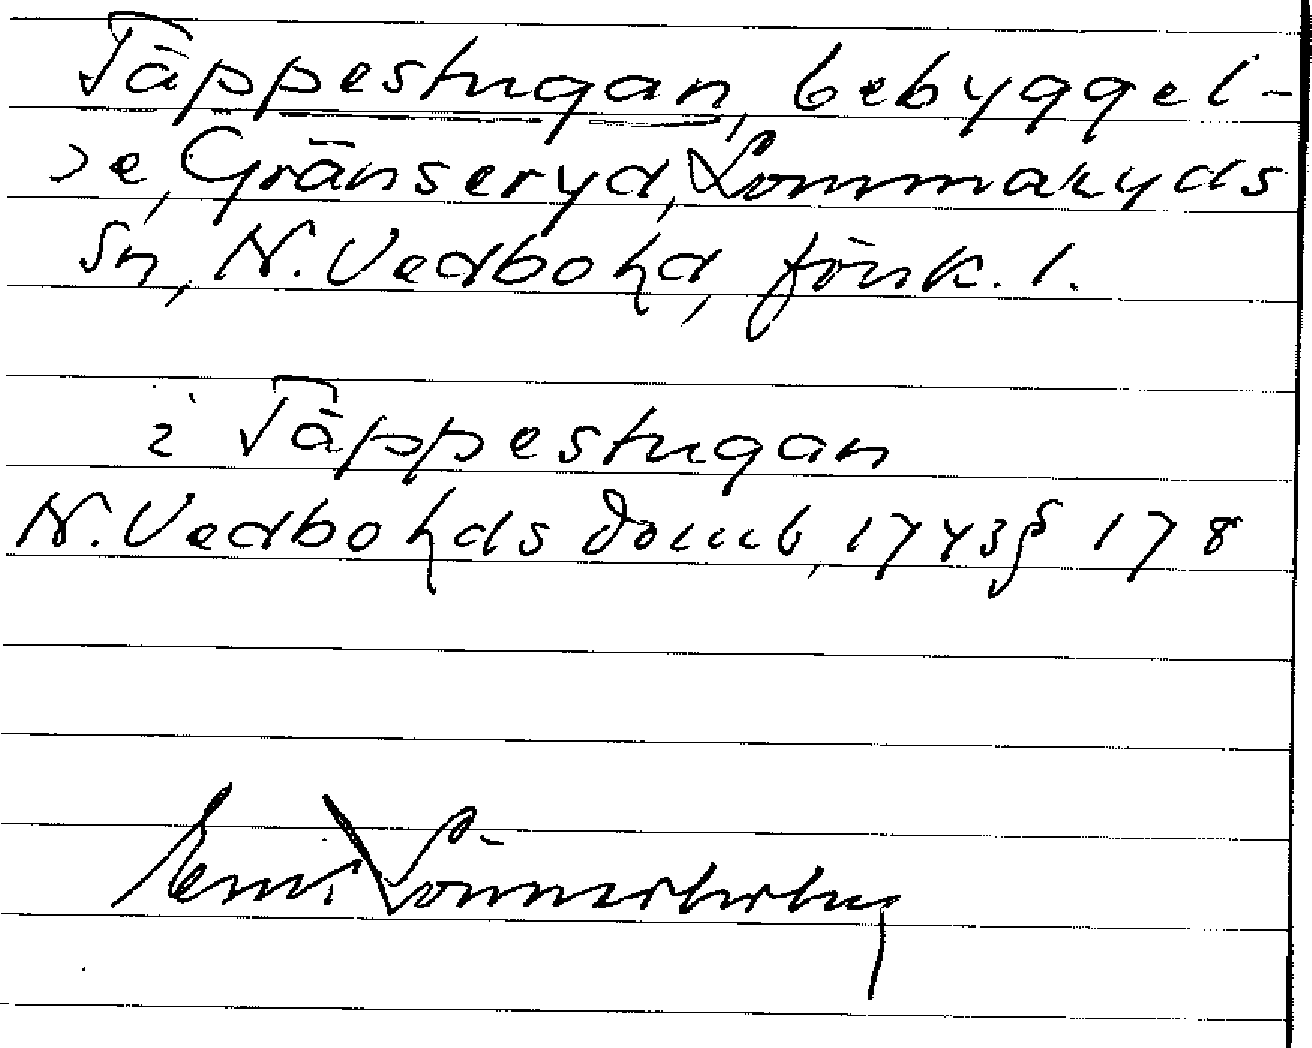 Täppestugan, bebyggel-
se, Gränseryd, Lommaryds
sn, N. Vedbohd, försk. 1.
i Täppestugan
N. Vedbohds domb, 1743 § 178
Emil